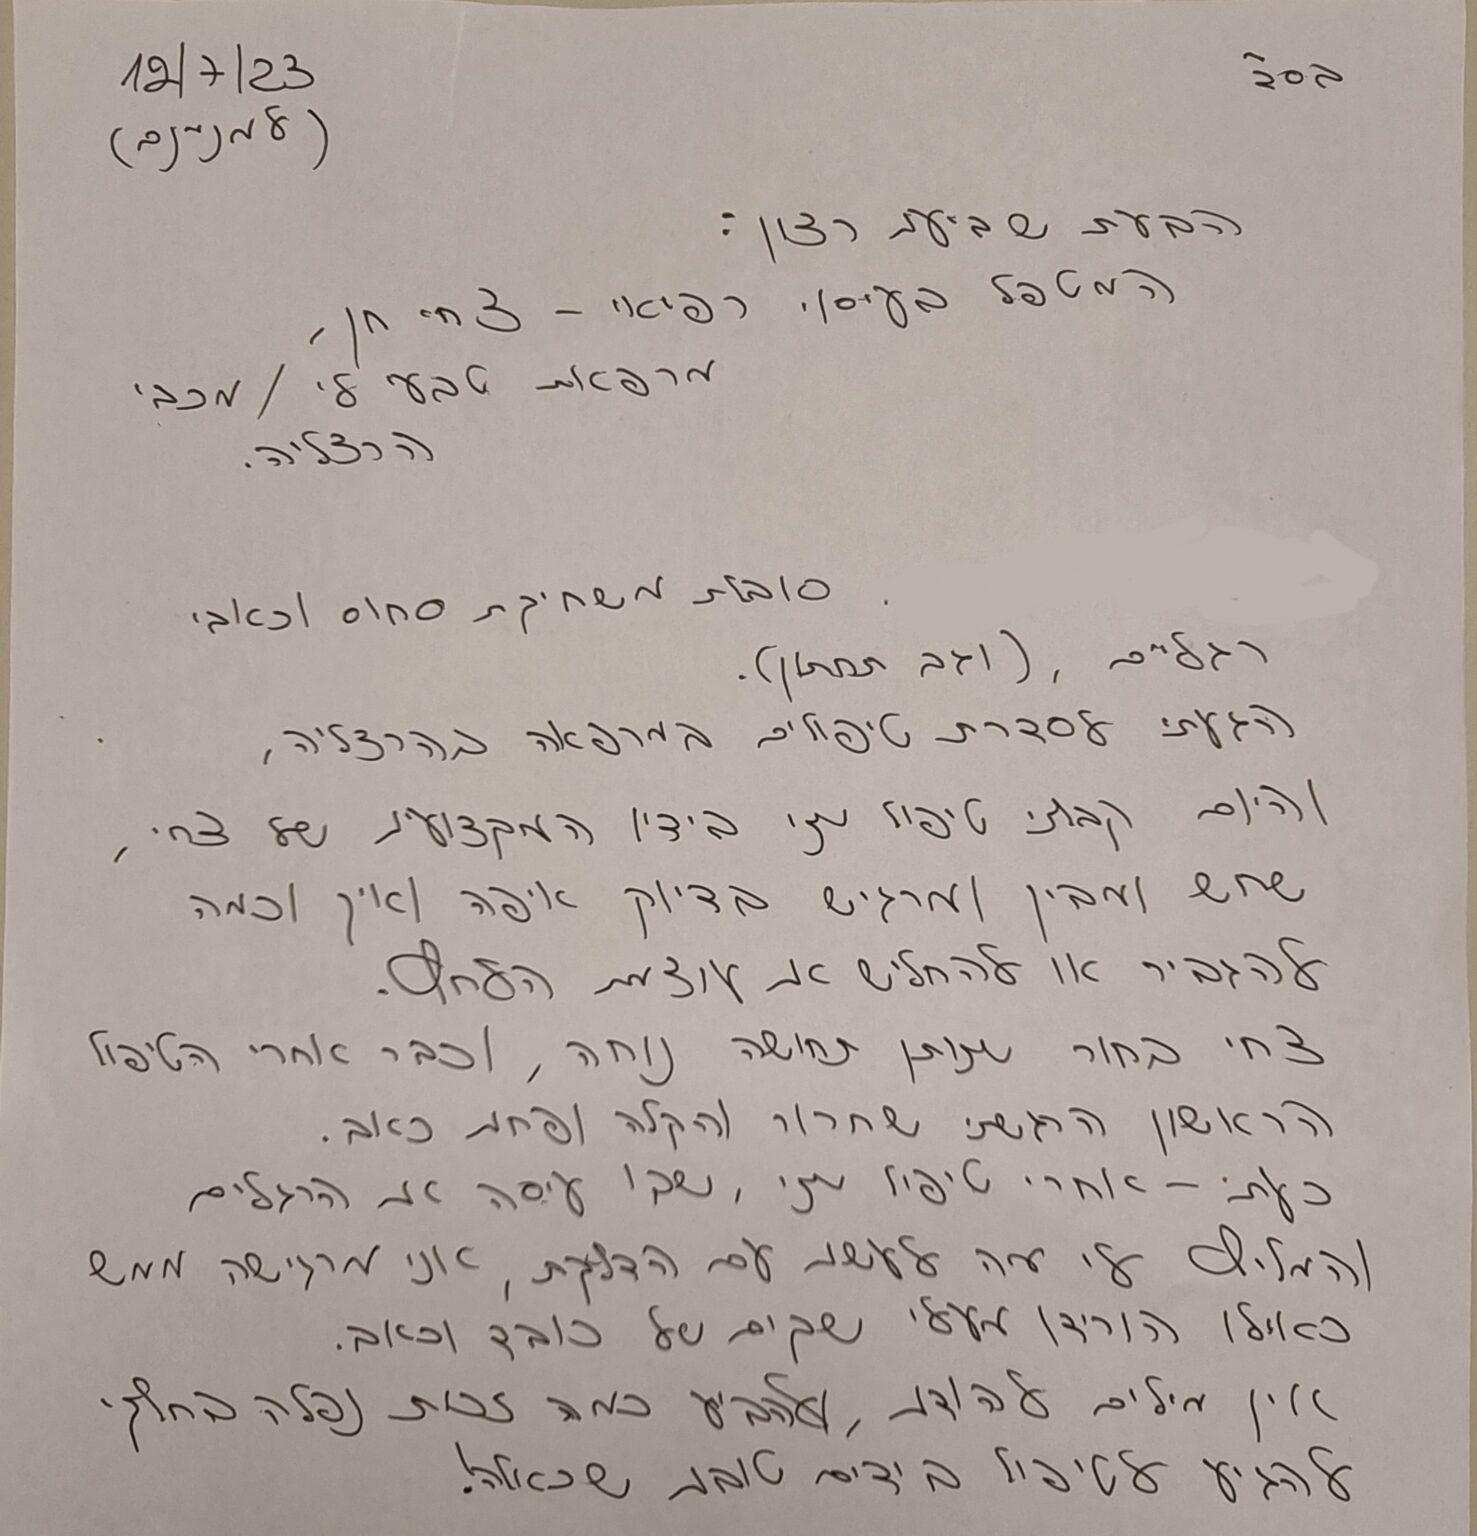 בס״ד
12/7/23
(למניינם)
הבעת שביעת רצון:
המטפל בעיסוי רפואי - צחי חן,
מרפאת טבעי לי / מכבי
הרצליה.
סובלת משחיקת סחוס וכאבי
רגליים, (וגב תחתון).
הגעתי לסדרת טיפולים במרפאה בהרצליה,
והיום קבלתי טיפול שני בידיו המקצועיות של צחי,
שחש ומבין ומרגיש בדיוק איפה ואיך וכמה
להגביר או להחליש את עוצמת הלחץ.
צחי בחור שנותן תחושה נוחה, וכבר אחרי הטיפול
הראשון הרגשתי שחרור והקלה ופחת כאב.
כעת - אחרי טיפול שני, שבו עיסה את הרגליים
והמליץ לי מה לעשות עם הדלקת, אני מרגישה ממש
כאילו הורידו מעלי שקים של כובד וכאב.
אין מילים להודות, ולהביע כמה זכות נפלה בחלקי
להגיע לטיפול בידיים טובות שכאלה!